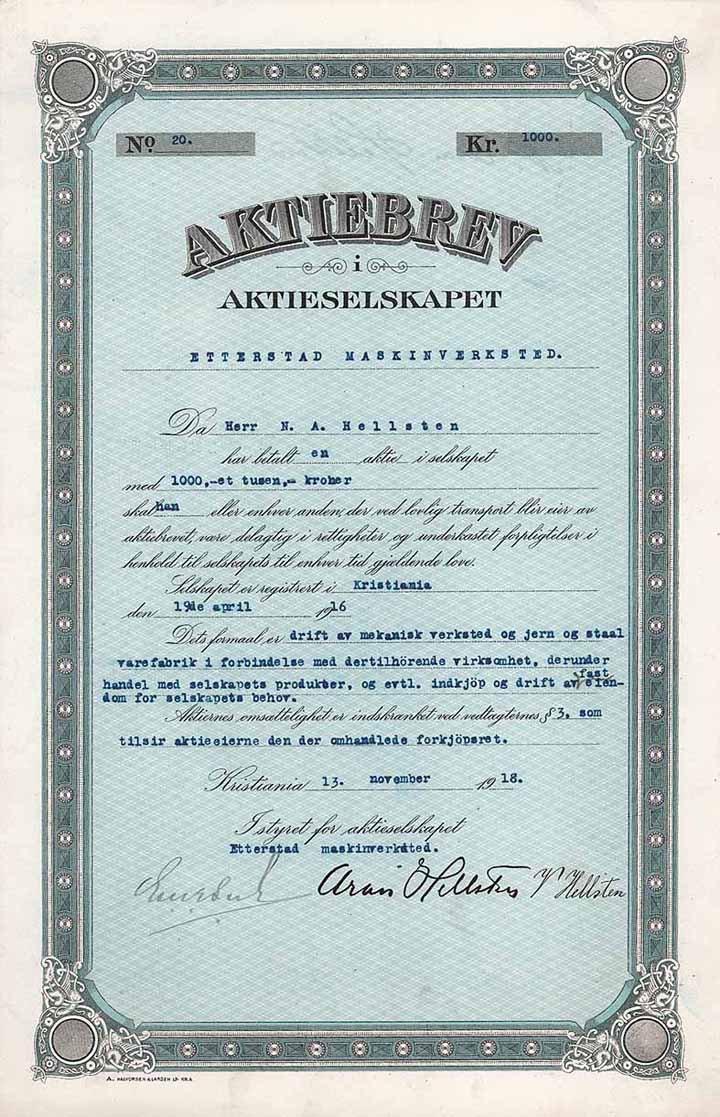 No 20. Kr. 1000.
AKTIEBREV
i
AKTIESELSKAPET
ETTERSTAD MASKINVERKSTED.
Da Herr N. A. Hellsten
har betalt en aktie i selskapet
med 1000,-et tusen,- kroner
skal han eller enhver anden, der ved lovlig transport blir eier av
aktiebrevet, være delagtig i rettigheter og underkastet forpligtelser i
henhold til selskapets til enhver tid gjældende love.
Selskapet er registrert i Kristiania
den 19de april 1916
Dets formaal er drift av mekanisk verksted og jern og staal
varefabrik i forbindelse med dertilhörende virksomhet, derunder
handel med selskapets produkter, og evtl. indkjöp og drift av fast eien-
dom for selskapets behov.
Aktiernes omsættelighet er indskrænket ved vedtægternes § 3. som
tilsir aktieeierne den der omhandlede forkjöpsret.
Kristiania 13. november 1918.
I styret for aktieselskapet
Etterstad maskinverksted.
Hellsten Hellsten